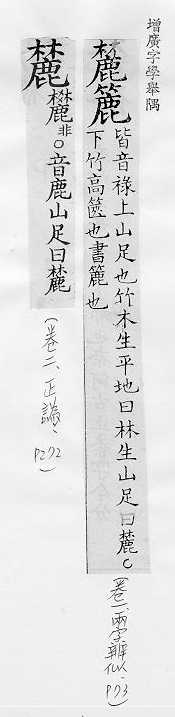 增廣字學舉隅
麓簏
皆音祿上山足也竹木生平地曰林生山足曰麓。
下竹高篋也書簏也
(卷一、兩字辨似、P73)
麓
䴡非○音鹿山足曰麓
(卷二、正譌、P272)